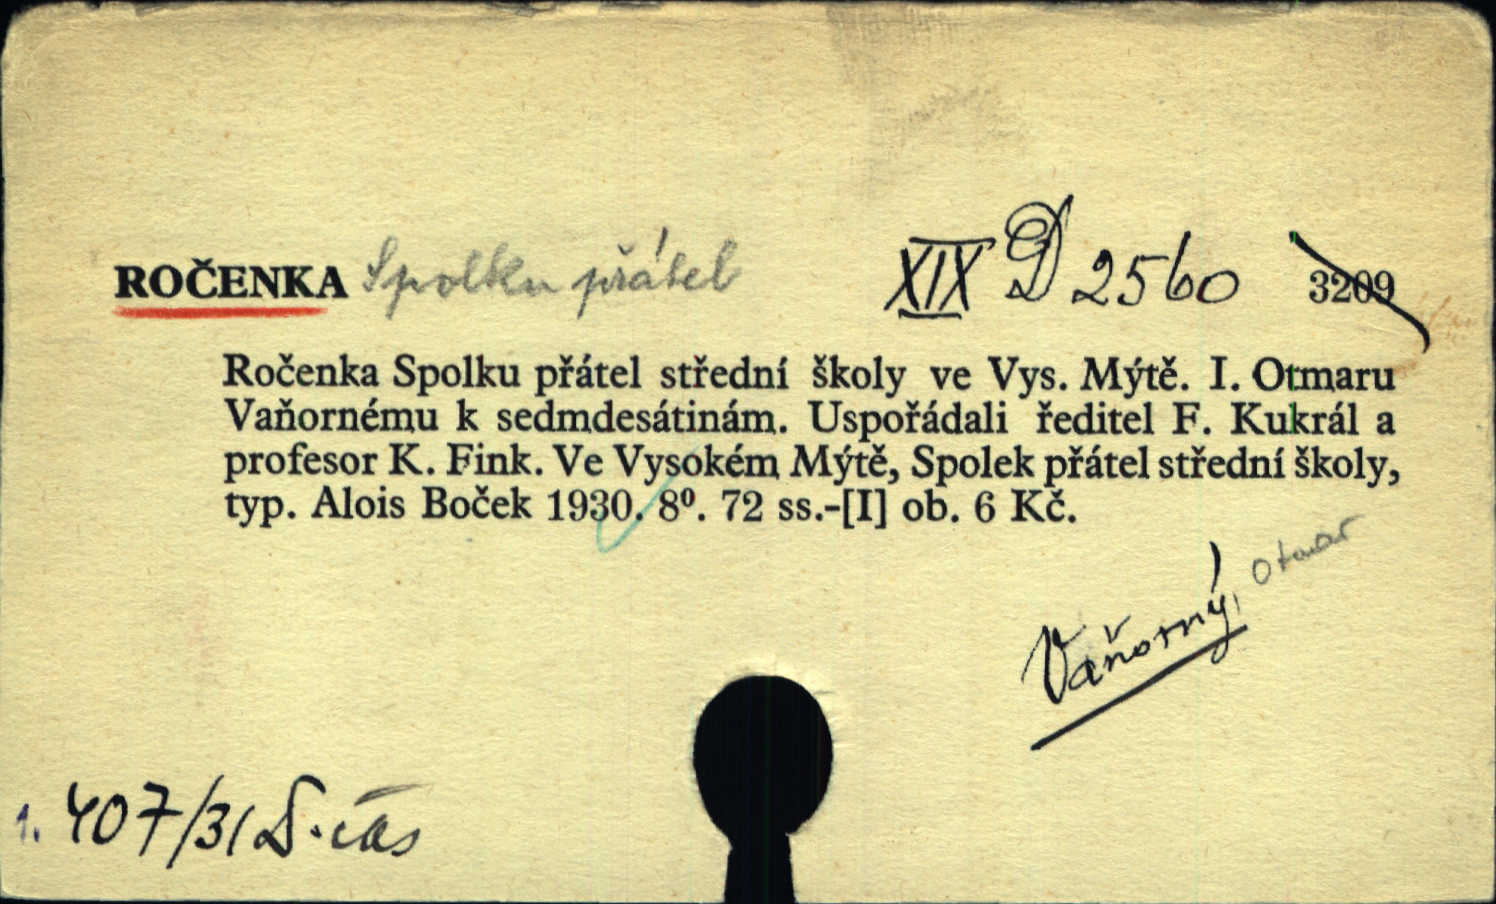 ROČENKA Spolku přátel XIX D 2560 3209
Ročenka Spolku přátel střední školy ve Vys. Mýtě. I. Otmaru
Vaňornému k sedmdesátinám. Uspořádali ředitel F. Kukrál a
profesor K. Fink. Ve Vysokém Mýtě, Spolek přátel střední školy,
typ. Alois Boček 1930. 8⁰. 72 ss.-[I] ob. 6 Kč.
Vaňorný, Otmar
1. 407/31 D. čas